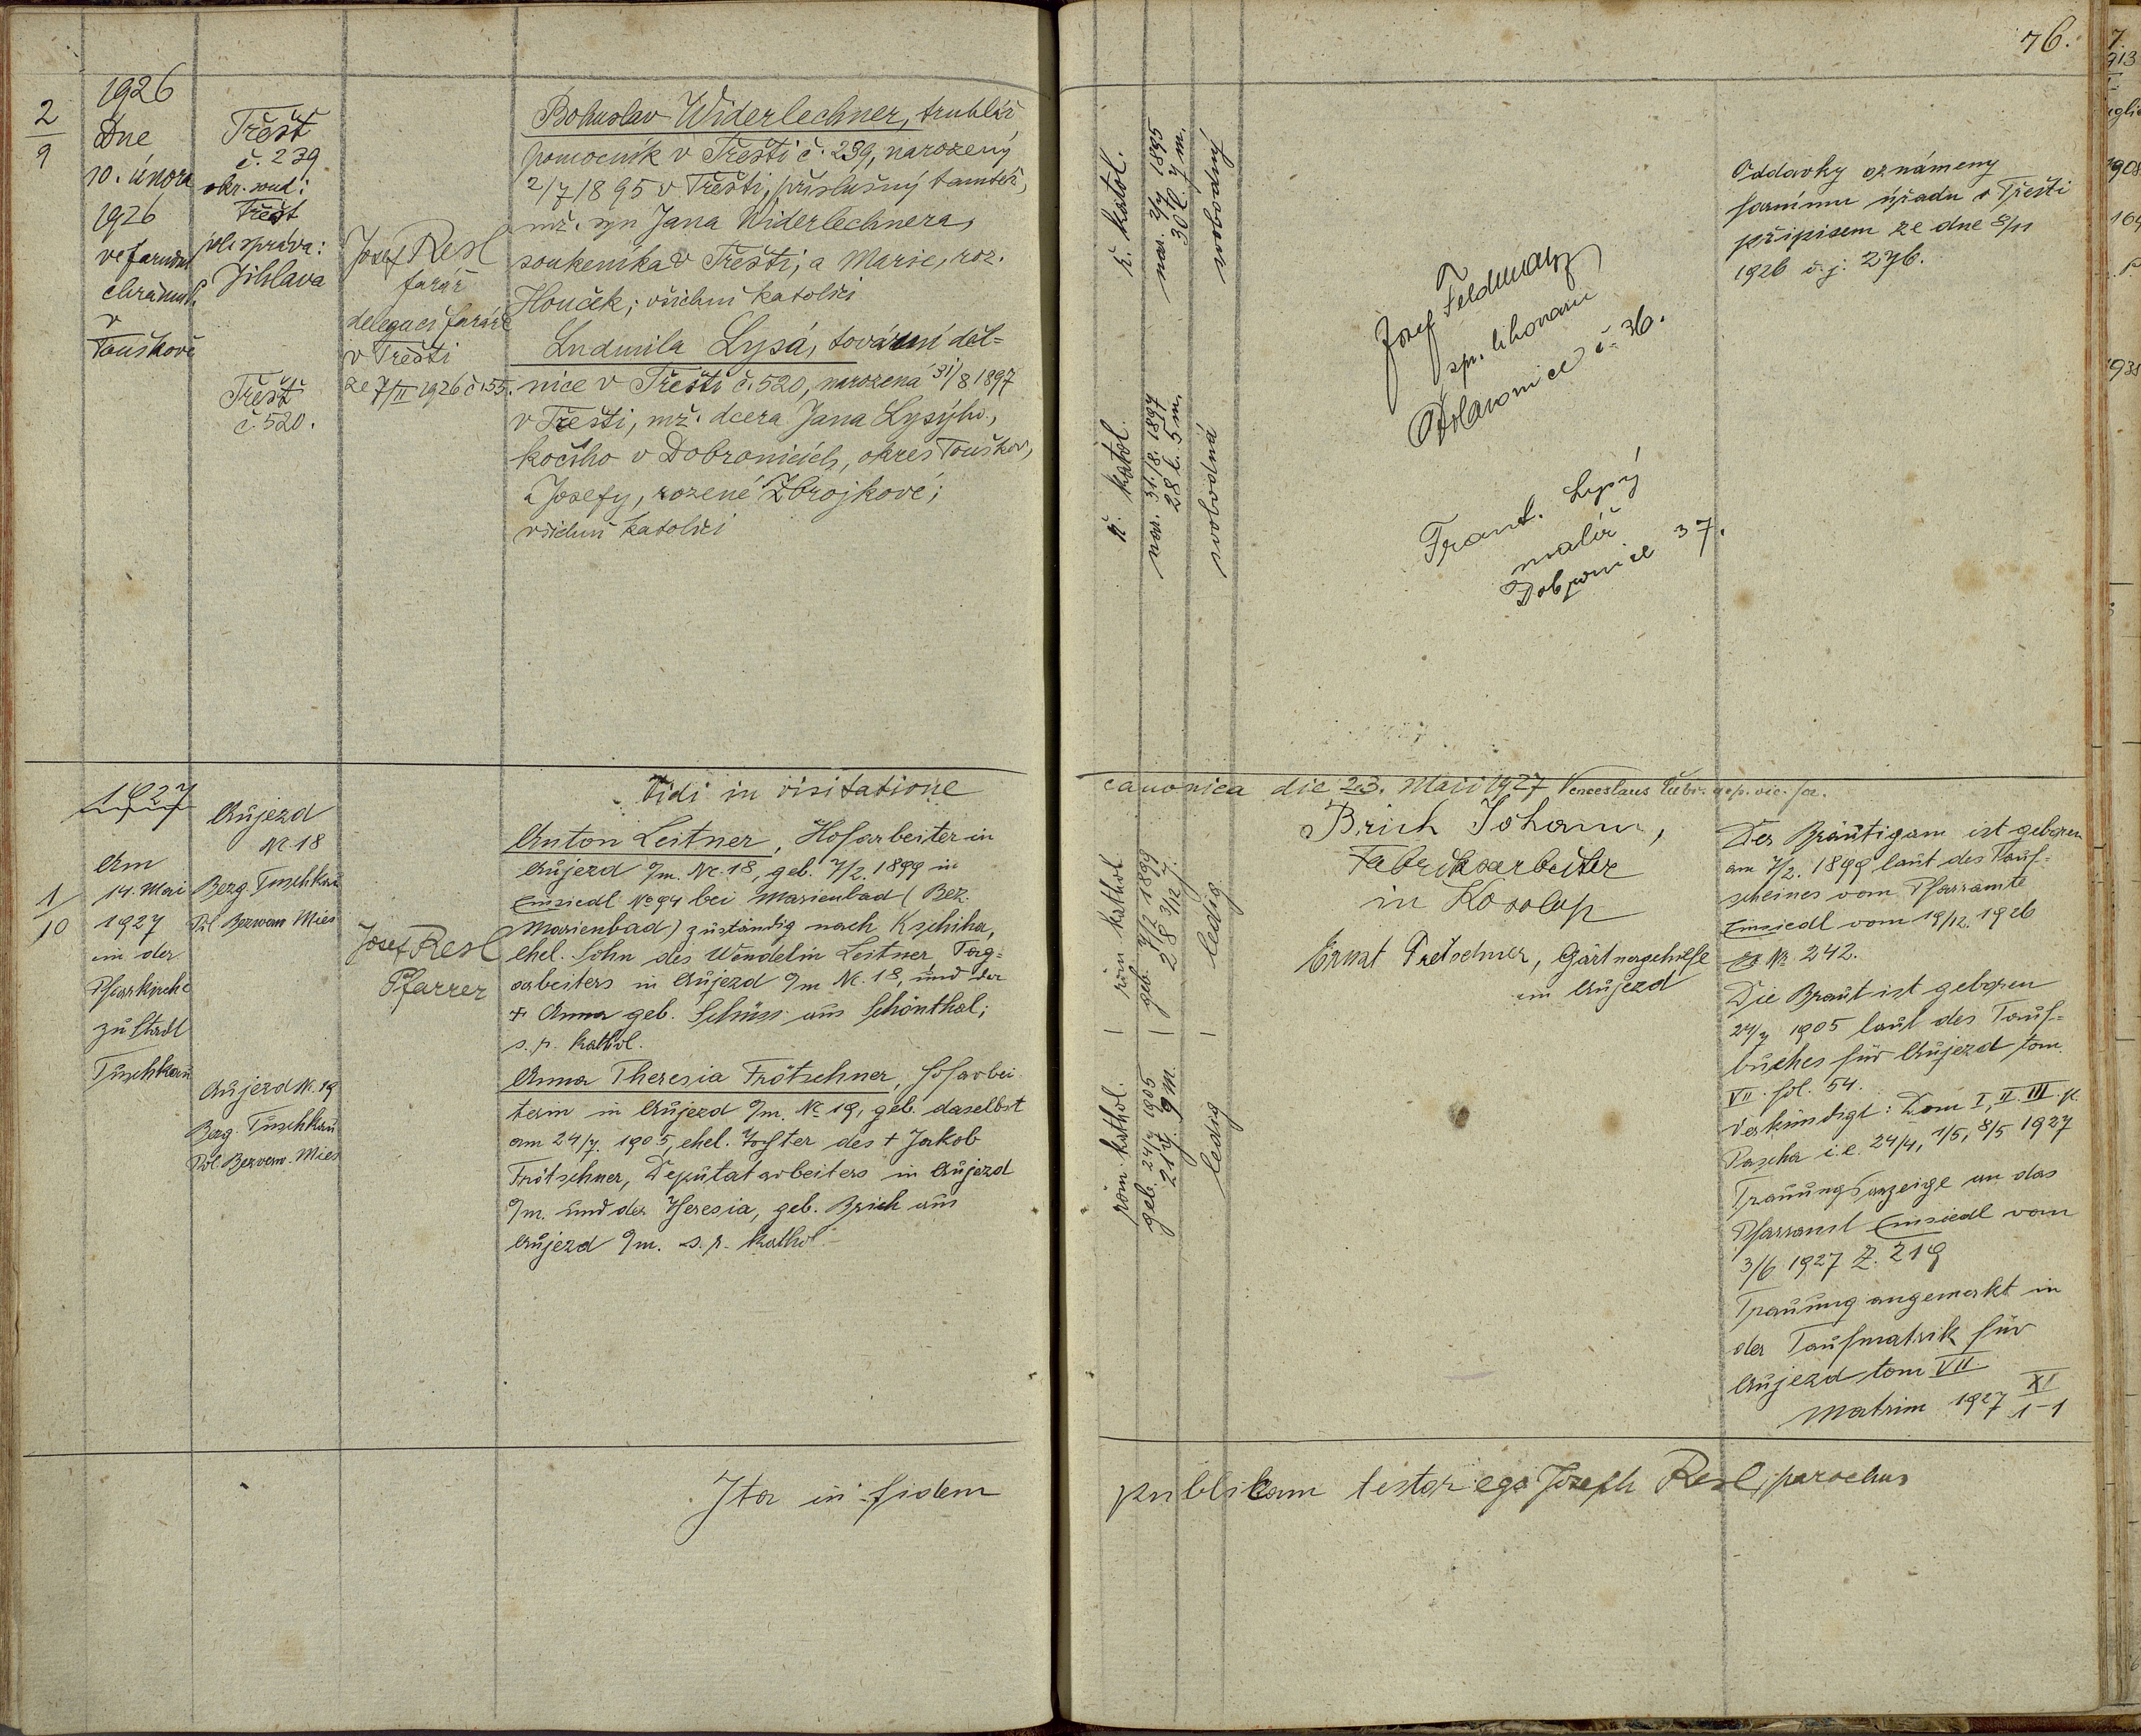 76.
1926
2
9
Dne
10. února
1926
ve farním
chrámě
v
Touškově
Třešť
č. 239
okr. soud:
Třešť
pol. správa:
Jihlava
Třešť
č. 520.
Josef Resl
farář
delegací faráře
v Třešti
ze 7/II 1926 č. 155.
Bohuslav Widerlechner, truhlář.
pomocník v Třešti č. 239, narozený
2/7 1895 v Třešti, příslušný tamtéž,
mž. syn Jana Widerlechnera,
soukeníka v Třešti, a Marie, roz.
Houček; všichni katolíci
Ludmila Lysá, tovární děl=
nice v Třešti č. 520, narozená 31/8 1897
v Třešti, mž. dcera Jana Lysýho,
kočího v Dobronicích, okres Touškov,
a Josefy, rozené Zbrojkové;
všichni katolíci
ř. katol.
nar. 2/7 1895
30 l. 7 m.
svobodný
ř. katol.
nar. 31./8. 1897
28 l. 5 m.
svobodná
Josef Feldmann
spr. lihovaru
č. 36.
Frant. Lysý
malíř
Dobronice 37.
Oddavky oznámeny
farnímu úřadu v Třešti
přípisem ze dne
1926 č. j. 276.
Vidi in visitatione canonica die 23. Maii 1927 Venceslaus
1927
1
10
Am
14. Mai
1927
in der
Pfarrkirche
zu Stadt
Tuschkau
Aujezd
Nr. 18
Bezg. Tuschkau
Pol. Bezverw. Mies
Aujezd Nr. 19
Bezg. Tuschkau
Pol. Bezverw. Mies
Josef Resl
Pfarrer
Anton Leitner, Hofarbeiter in
Aujezd o/m. Nr. 18, geb. 7/2. 1899 in
Einsiedl No 94 bei Marienbad (Bez.
Marienbad) zuständig nach Kschiha,
ehel. Sohn des Wendelin Leitner, Tag=
arbeiters in Aujezd o/m Nr. 18, und der
+ Anna geb. Schüss aus Schönthal;
s. p. kathol.
Anna Theresia Frötschner, Hofarbei
terin in Aujezd o/m. No 19, geb. daselbst
am 24/7. 1905, ehel. Tochter des + Jakob
Frötschner, Deputatarbeiters in Aujezd
o/m. und der Theresia, geb. Brich aus
Aujezd o/m. s. p. kathol.
röm kathol.
geb. 7/2 1899
28 3/12 J.
ledig
röm. kathol.
geb. 24/7 1905
21 J. 9 m.
ledig
Brich Johann,
Fabriksarbeiter
in Kosolup
Ernst Pretschner, Gärtnergehilfe
in Aujezd
Der Bräutigam ist geboren
am 7/2. 1899 laut des Tauf=
scheines vom Pfarramte
Einsiedl vom 19/12. 1926
Nr. 242.
Die Braut ist geboren
24/7 1905 laut des Tauf=
buches für Aujezd tom
VII. fol. 54.
Verkündigt: Dom I, II. III. p.
Pascha i. e. 24/4, 1/5, 8/5 1927
Trauungsanzeige an das
Pfarramt Einsiedl vom
3/6 1927 Z. 219
Trauung angemerkt in
der Taufmatrik für
Aujezd tom VII.
Matrim 1927 XI
1-1
Ita in fidem publicam testor ego Joseph Resl, parochus